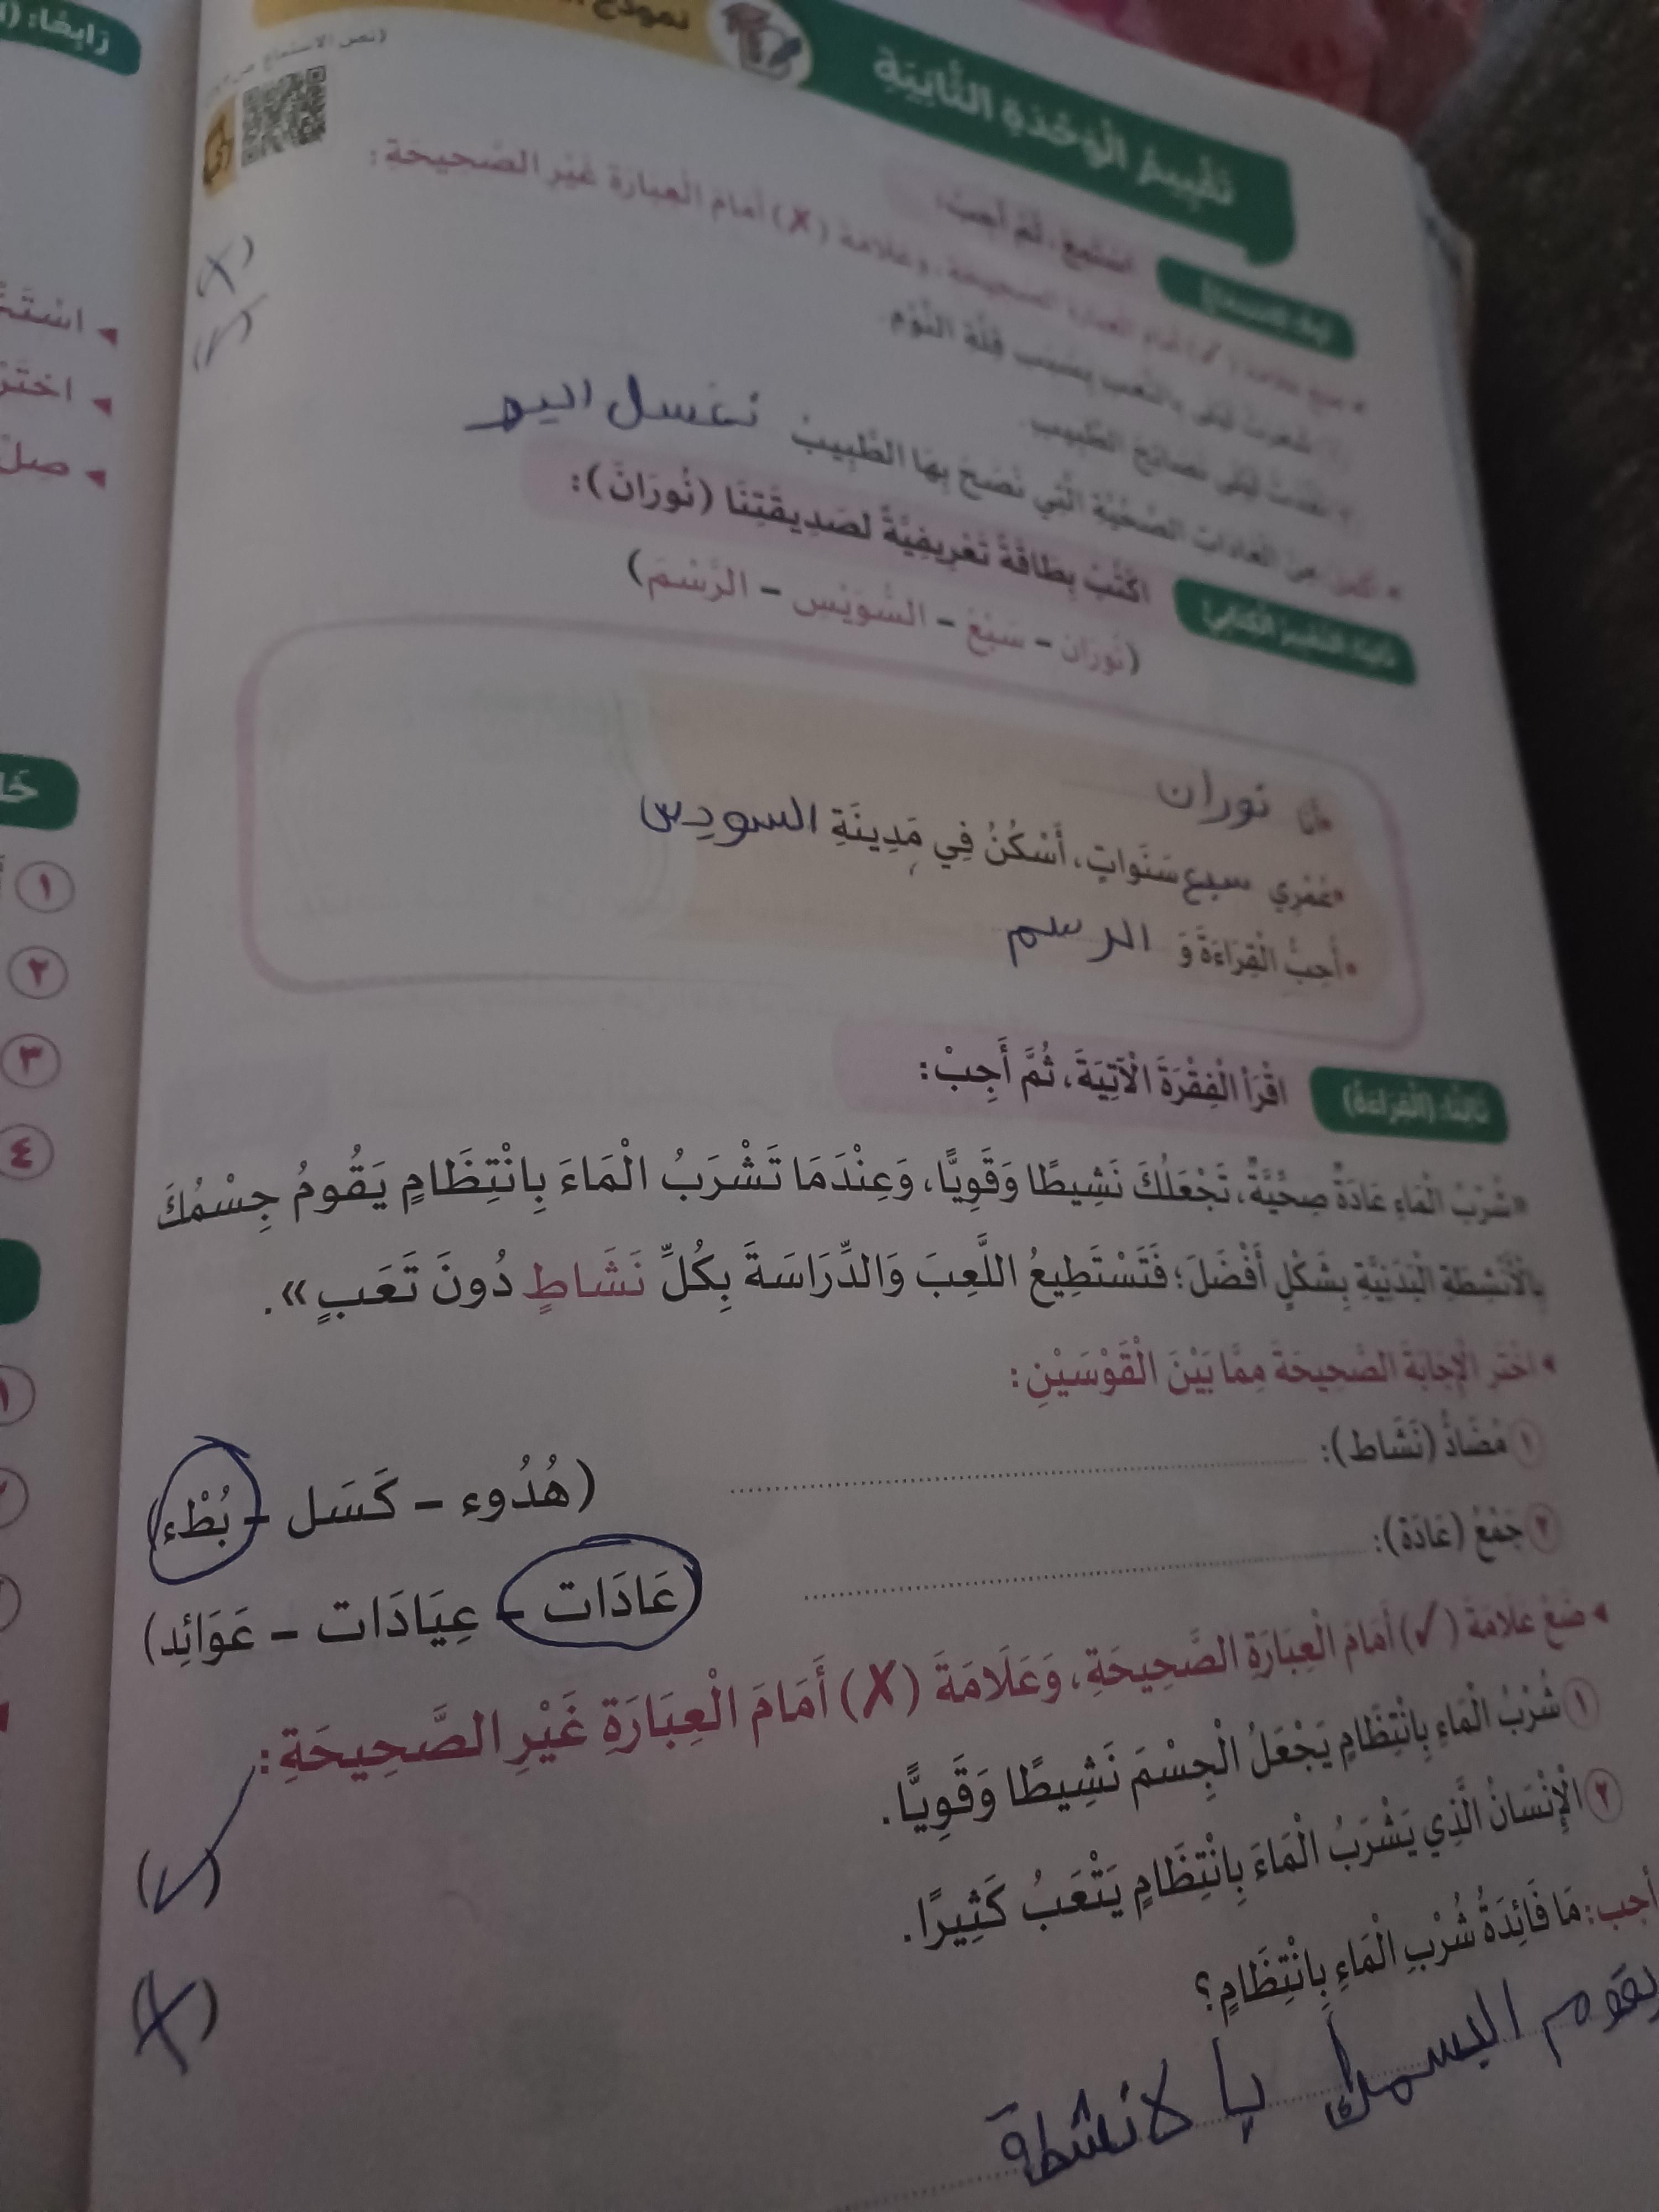 رَابِعًا:
نموذج
تَقْيِيمُ الْوَحْدَةِ الثَّانِيَةِ
(نص الاستماع ص
اسْتَمِعْ، ثُمَّ أَجِبْ:
ضع علامة (✓) أَمَامَ الْعِبَارَةِ الصَّحِيحَةِ، وَعَلَامَةَ (✗) أَمَامَ الْعِبَارَةِ غَيْرِ الصَّحِيحَةِ:
شعرت ليلى بِالتَّعَبِ بِسَبَبِ قِلَّةِ النَّوْمِ. (✗)
ليلى نَصَائِحَ الطَّبِيبِ. (✓)
من الْعَادَاتِ الصِّحِّيَّةِ الَّتِي نَصَحَ بِهَا الطَّبِيبُ نغسل اليد
ثانيًا: (التَّعْبِيرُ الْكِتَابِيُّ) اكْتُبْ بِطَاقَةً تَعْرِيفِيَّةً لِصَدِيقَتِنَا (نُورَانَ):
(نُورَان – سَبْعَ – السُّوَيْس – الرَّسْمَ)
«أَنَا نوران
•عُمْرِي سبع سَنَوَاتٍ، أَسْكُنُ فِي مَدِينَةِ السودس
•أُحِبُّ الْقِرَاءَةَ وَ الرسم
ثَالِثًا: (الْقِرَاءَةُ) اقْرَأِ الْفِقْرَةَ الْآتِيَةَ، ثُمَّ أَجِبْ:
«شُرْبُ الْمَاءِ عَادَةٌ صِحِّيَّةٌ، تَجْعَلُكَ نَشِيطًا وَقَوِيًّا، وَعِنْدَمَا تَشْرَبُ الْمَاءَ بِانْتِظَامٍ يَقُومُ جِسْمُكَ
بِالْأَنْشِطَةِ الْبَدَنِيَّةِ بِشَكْلٍ أَفْضَلَ؛ فَتَسْتَطِيعُ اللَّعِبَ وَالدِّرَاسَةَ بِكُلِّ نَشَاطٍ دُونَ تَعَبٍ».
◂ اخْتَرِ الْإِجَابَةَ الصَّحِيحَةَ مِمَّا بَيْنَ الْقَوْسَيْنِ:
١ مُضَادُّ (نَشَاط): (هُدُوء – كَسَل – بُطْء)
٢ جَمْعُ (عَادَة): (عَادَات – عِيَادَات – عَوَائِد)
◂ ضَعْ عَلَامَةَ (✓) أَمَامَ الْعِبَارَةِ الصَّحِيحَةِ، وَعَلَامَةَ (✗) أَمَامَ الْعِبَارَةِ غَيْرِ الصَّحِيحَةِ:
١ شُرْبُ الْمَاءِ بِانْتِظَامٍ يَجْعَلُ الْجِسْمَ نَشِيطًا وَقَوِيًّا. (✓)
٢ الْإِنْسَانُ الَّذِي يَشْرَبُ الْمَاءَ بِانْتِظَامٍ يَتْعَبُ كَثِيرًا. (✗)
أَجِب: مَا فَائِدَةُ شُرْبِ الْمَاءِ بِانْتِظَامٍ؟
يقوم بالانشطة
◂ صِلْ
١
٢
٣
٤